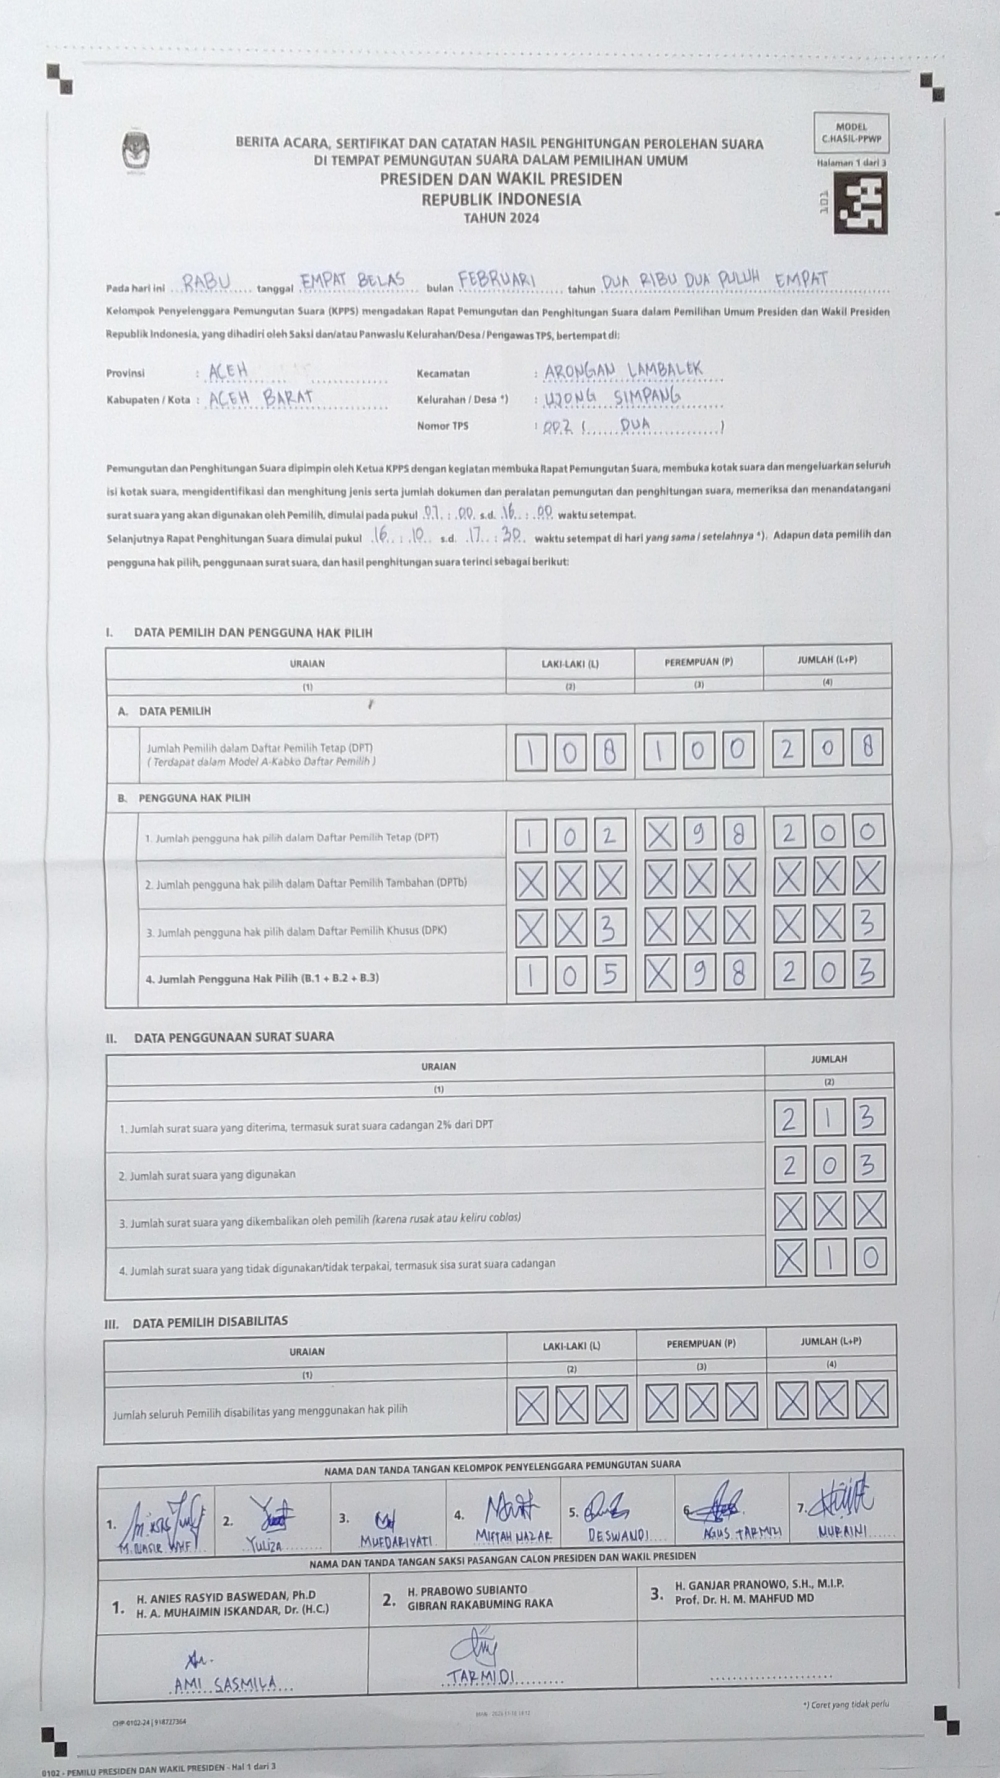 MODEL
C.HASIL-PPWP
BERITA ACARA, SERTIFIKAT DAN CATATAN HASIL PENGHITUNGAN PEROLEHAN SUARA
DI TEMPAT PEMUNGUTAN SUARA DALAM PEMILIHAN UMUM
PRESIDEN DAN WAKIL PRESIDEN
REPUBLIK INDONESIA
TAHUN 2024
Halaman 1 dari 3
101
Pada hari ini RABU tanggal EMPAT BELAS bulan FEBRUARI tahun DUA RIBU DUA PULUH EMPAT
Kelompok Penyelenggara Pemungutan Suara (KPPS) mengadakan Rapat Pemungutan dan Penghitungan Suara dalam Pemilihan Umum Presiden dan Wakil Presiden
Republik Indonesia, yang dihadiri oleh Saksi dan/atau Panwaslu Kelurahan/Desa / Pengawas TPS, bertempat di:
Provinsi : ACEH Kecamatan : ARONGAN LAMBALEK
Kabupaten / Kota : ACEH BARAT Kelurahan / Desa *) : UJONG SIMPANG
Nomor TPS : 002 ( DUA )
Pemungutan dan Penghitungan Suara dipimpin oleh Ketua KPPS dengan kegiatan membuka Rapat Pemungutan Suara, membuka kotak suara dan mengeluarkan seluruh
isi kotak suara, mengidentifikasi dan menghitung jenis serta jumlah dokumen dan peralatan pemungutan dan penghitungan suara, memeriksa dan menandatangani
surat suara yang akan digunakan oleh Pemilih, dimulai pada pukul 07 : 00 s.d. 16 : 00 waktu setempat.
Selanjutnya Rapat Penghitungan Suara dimulai pukul 16 : 10 s.d. 17 : 30 waktu setempat di hari yang sama / setelahnya *). Adapun data pemilih dan
pengguna hak pilih, penggunaan surat suara, dan hasil penghitungan suara terinci sebagai berikut:
I. DATA PEMILIH DAN PENGGUNA HAK PILIH
URAIAN LAKI-LAKI (L) PEREMPUAN (P) JUMLAH (L+P)
(1) (2) (3) (4)
A. DATA PEMILIH
Jumlah Pemilih dalam Daftar Pemilih Tetap (DPT) 1 0 8 1 0 0 2 0 8
( Terdapat dalam Model A-Kabko Daftar Pemilih )
B. PENGGUNA HAK PILIH
1. Jumlah pengguna hak pilih dalam Daftar Pemilih Tetap (DPT) 1 0 2 X 9 8 2 0 0
2. Jumlah pengguna hak pilih dalam Daftar Pemilih Tambahan (DPTb) X X X X X X X X X
3. Jumlah pengguna hak pilih dalam Daftar Pemilih Khusus (DPK) X X 3 X X X X X 3
4. Jumlah Pengguna Hak Pilih (B.1 + B.2 + B.3) 1 0 5 X 9 8 2 0 3
II. DATA PENGGUNAAN SURAT SUARA
URAIAN JUMLAH
(1) (2)
1. Jumlah surat suara yang diterima, termasuk surat suara cadangan 2% dari DPT 2 1 3
2. Jumlah surat suara yang digunakan 2 0 3
3. Jumlah surat suara yang dikembalikan oleh pemilih (karena rusak atau keliru coblos) X X X
4. Jumlah surat suara yang tidak digunakan/tidak terpakai, termasuk sisa surat suara cadangan X 1 0
III. DATA PEMILIH DISABILITAS
URAIAN LAKI-LAKI (L) PEREMPUAN (P) JUMLAH (L+P)
(1) (2) (3) (4)
Jumlah seluruh Pemilih disabilitas yang menggunakan hak pilih X X X X X X X X X
NAMA DAN TANDA TANGAN KELOMPOK PENYELENGGARA PEMUNGUTAN SUARA
1. 2. 3. 4. 5. 6. 7.
M. NASIR YULIZA MUFDARIYATI MIFTAH NAZAR DESWANDI AGUS TARMIZI NURAINI
NAMA DAN TANDA TANGAN SAKSI PASANGAN CALON PRESIDEN DAN WAKIL PRESIDEN
1. H. ANIES RASYID BASWEDAN, Ph.D
H. A. MUHAIMIN ISKANDAR, Dr. (H.C.)
2. H. PRABOWO SUBIANTO
GIBRAN RAKABUMING RAKA
3. H. GANJAR PRANOWO, S.H., M.I.P.
Prof. Dr. H. M. MAHFUD MD
AMI SASMILA TARMIDI
*) Coret yang tidak perlu
CHP-0102-24 | 918727364
0102 - PEMILU PRESIDEN DAN WAKIL PRESIDEN - Hal 1 dari 3